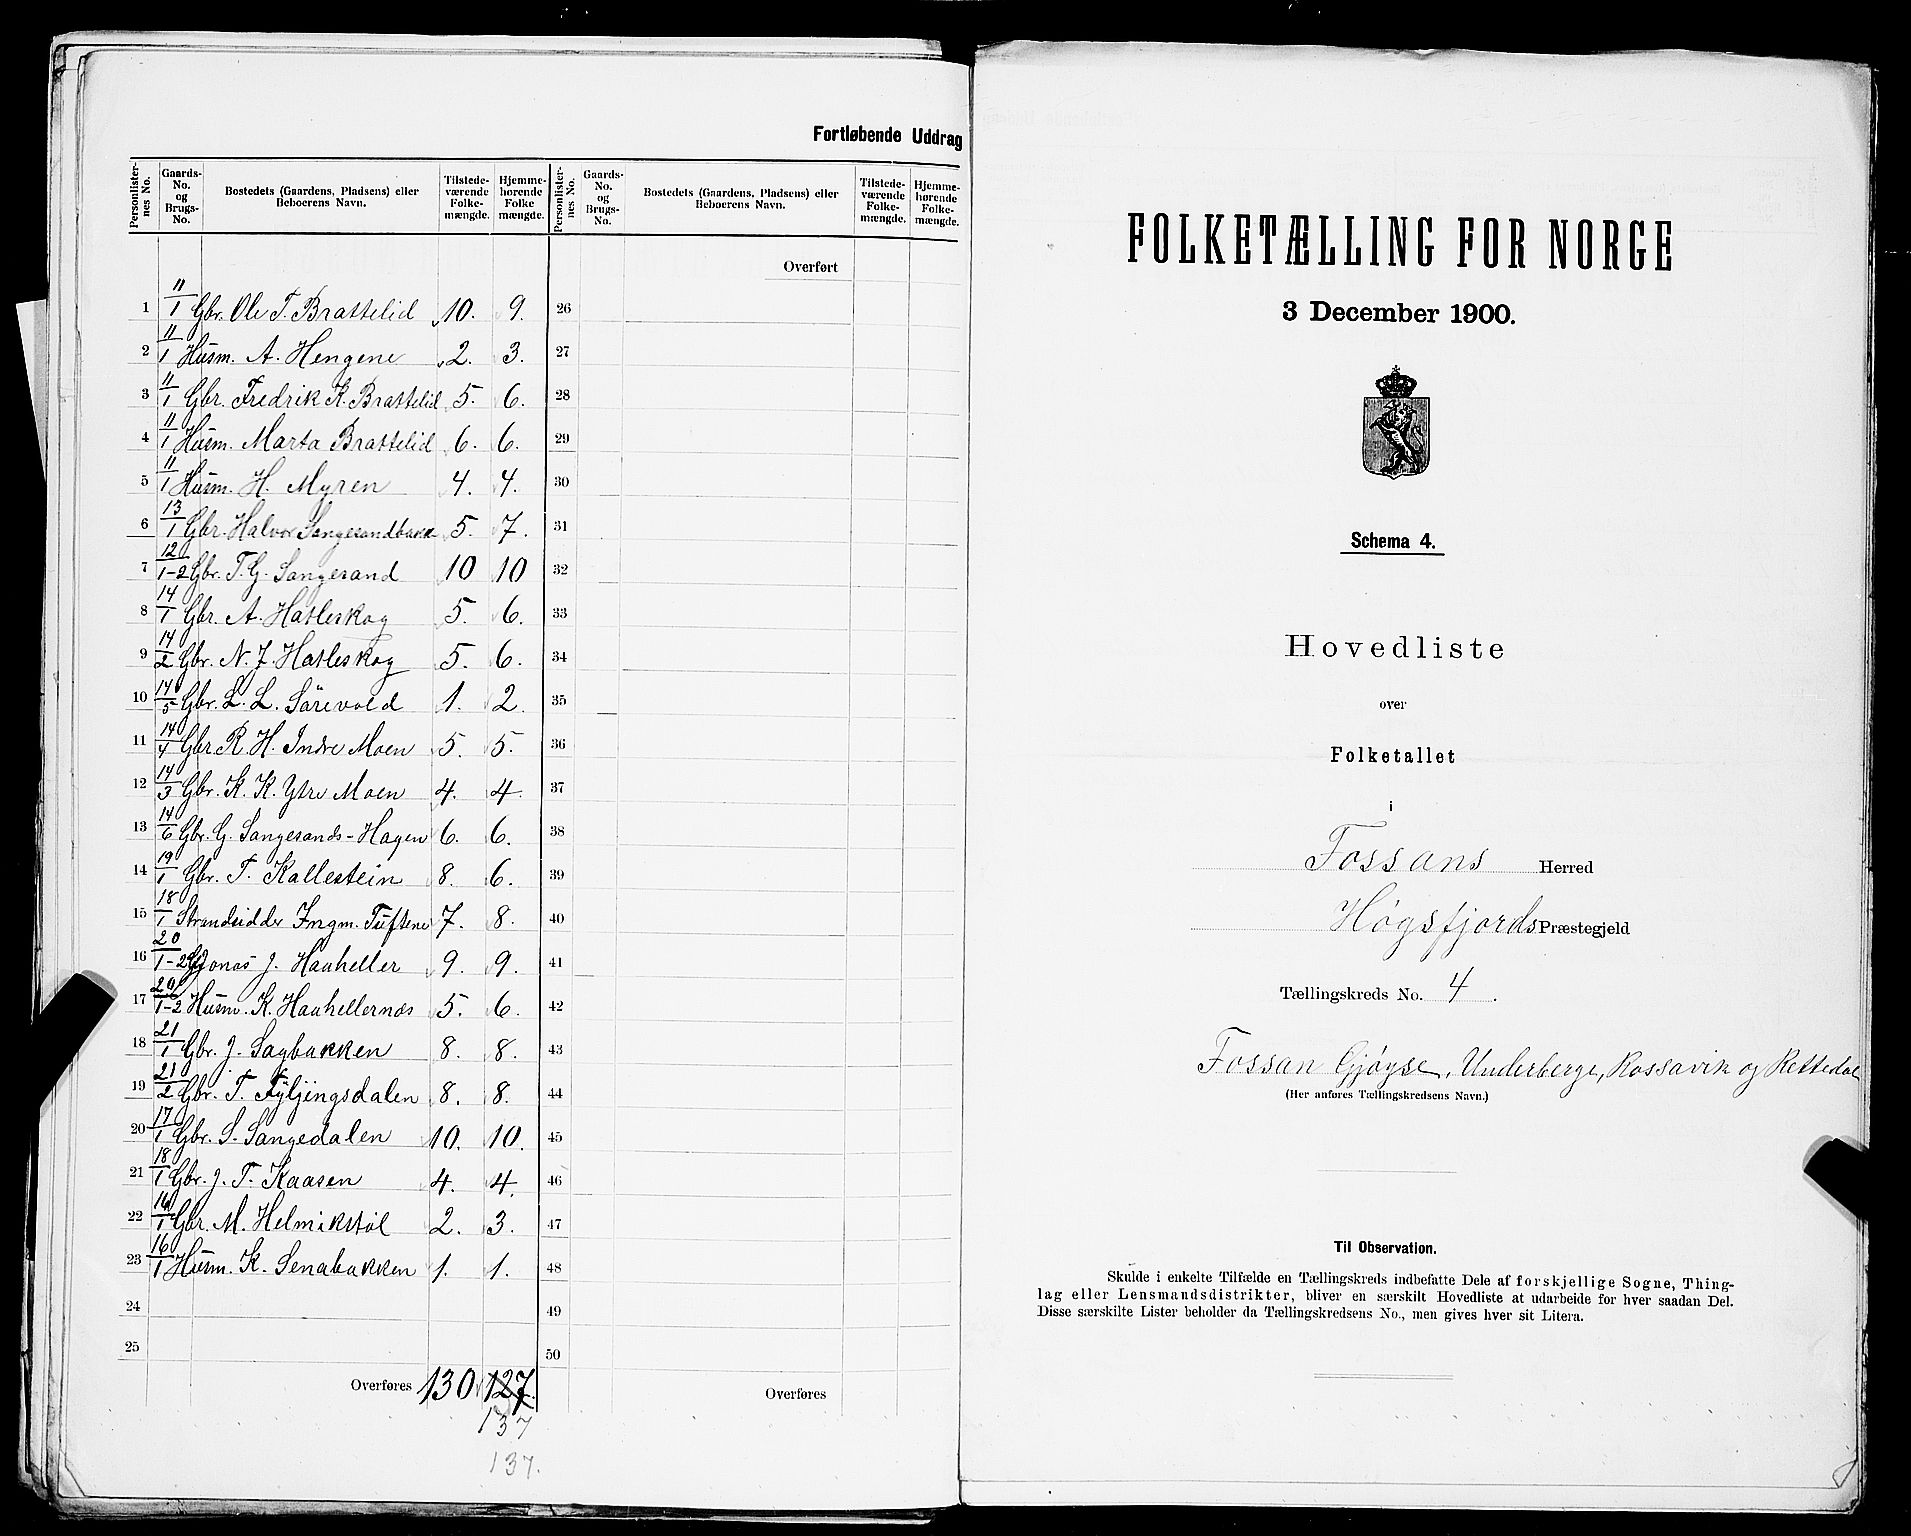 Fortløbende Uddrag
Personlister-nes No. Gaards-No. og Brugs-No. Bostedets (Gaardens, Pladsens) eller Beboerens Navn. Tilstede-værende Folke-mængde. Hjemme-hørende Folke mængde. Personlister-nes No. Gaards-No. og Brugs-No. Bostedets (Gaardens, Pladsens) eller Beboerens Navn. Tilstede-værende Folke-mængde. Hjemme-hørende Folke-mængde.
Overført
1 11/1 Gbr. Ole T. Brattelid 10. 9. 26
2 11/1 Husm. A. Hengene 2. 3. 27
3 11/1 Gbr. Fredrik K. Brattelid 5. 6. 28
4 11/1 Husm. Marta Brattelid 6. 6. 29
5 11/1 Husm. H. Myren 4. 4. 30
6 13/1 Gbr. Halvor Sangesandbakk 5. 7. 31
7 12/1-2 Gbr. T. G. Sangesand 10 10 32
8 14/1 Gbr. A. Hatleskog 5. 6. 33
9 14/2 Gbr. N. J. Hatleskog 5. 6. 34
10 14/5 Gbr. L. L. Sörevold 1. 2. 35
11 14/4 Gbr. R. H. Indre Moen 5. 5. 36
12 14/3 Gbr. K. K. Ytre Moen 4. 4. 37
13 14/6 Gbr. G. Sangesands-Hagen 6. 6. 38
14 19/1 Gbr. T. Kallestein 8. 6. 39
15 18/1 Strandsidder Ingm. Tuftene 7. 8. 40
16 20/1-2 Jonas J. Haaheller 9. 9. 41
17 20/1-2 Husm. K. Haahellernes 5. 6. 42
18 21/1 Gbr. J. Sagbakken 8. 8. 43
19 21/2 Gbr. T. Fyljingsdalen 8. 8. 44
20 17/1 Gbr. S. Sangedalen 10. 10. 45
21 18/1 Gbr. J. T. Kaasen 4. 4. 46
22 16/1 Gbr. M. Helmikstöl 2. 3. 47
23 16/1 Husm. K. Senabakken 1. 1. 48
24 49
25 50
Overføres 130 127. Overføres
137
137.
FOLKETÆLLING FOR NORGE
3 December 1900.
Schema 4.
Hovedliste
over
Folketallet
i
Fossans Herred
Høgsfjords Præstegjeld
Tællingskreds No. 4.
Fossan Gjøyse, Underberge, Rossavik og Rettedal
(Her anføres Tællingskredsens Navn.)
Til Observation.
Skulde i enkelte Tilfælde en Tællingskreds indbefatte Dele af forskjellige Sogne, Thing-
lag eller Lensmandsdistrikter, bliver en særskilt Hovedliste at udarbeide for hver saadan Del.
Disse særskilte Lister beholder da Tællingskredsens No., men gives hver sit Litera.